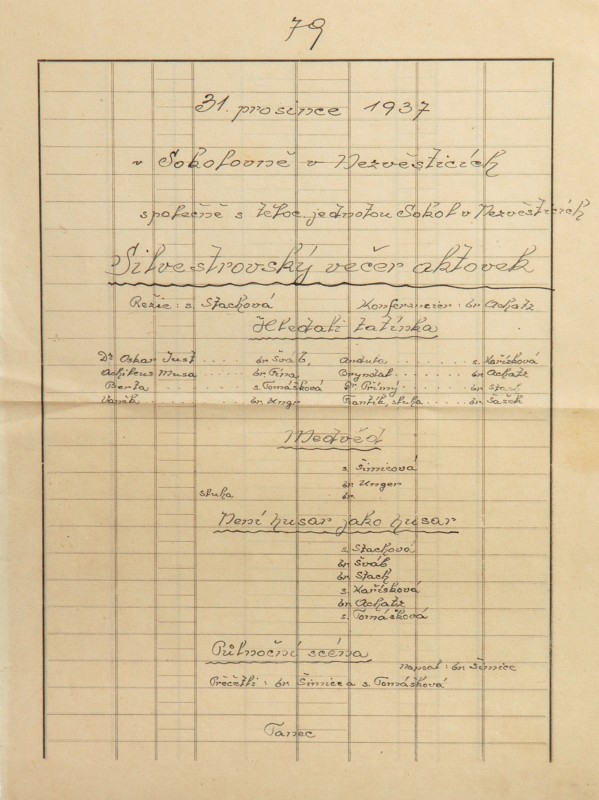 79
31. prosince 1937
v Sokolovně v Nezvěsticích
společně s těloc. jednotou Sokol v Nezvěsticích
Silvestrovský večer aktovek
Režie: s. Stachová Konferencier: br. Achatz
Hledali tatínka
Dr Oskar Just . . . . . br. Šváb, Andula . . . . . s. Kařísková
Achileus Musa . . . . . br. Fína Bryndal . . . . . br. Achatz
Berta . . . . . s. Tomášková Dr. Přímý . . . . . br. Stach
Vaněk . . . . . br. Unger Frantík, sluha . . . . . br. Šašek
Medvěd
s. Šimicová
br. Unger
sluha br.
Není husar jako husar
s. Stachová
br. Šváb
br. Stach
s. Kařísková
br. Achatz
s. Tomášková
Půlnoční scéna
napsal: br. Šimice
Přečetli: br. Šimice a s. Tomášková
Tanec